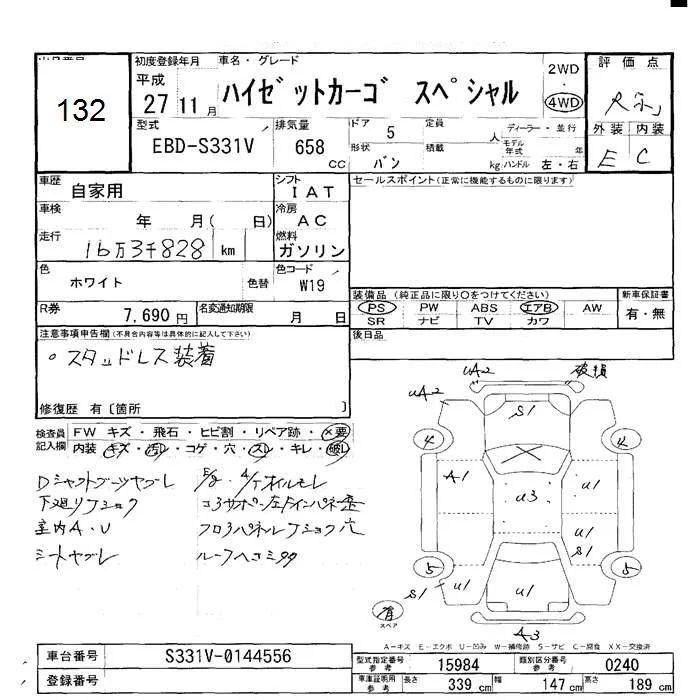 132
初度登録年月 車名・グレード
平成 27 11月 ハイゼットカーゴ スペシャル
2WD
4WD
評価点
型式 EBD-S331V
排気量 658 CC
ドア 5 定員 人 ディーラー・並行
形状 バン 積載 kg モデル年式 年
ハンドル 左・右
外装 内装
E C
車歴 自家用
シフト IAT
セールスポイント(正常に機能するものに限ります)
車検 年 月( 日)
冷房 AC
走行 16万3千828 km
燃料 ガソリン
色 ホワイト 色替
色コード W19
装備品 (純正品に限り○をつけてください) 新車保証書
PS PW ABS エアB AW 有・無
SR ナビ TV カワ
R券 7,690 円 名変通知期限 月 日
後日品
注意事項申告欄(不具合内容等は具体的に記入して下さい)
・スタッドレス装着
修復歴 有〔箇所 〕
検査員記入欄 FW キズ・飛石・ヒビ割・リペア跡・×要
内装 キズ・汚レ・コゲ・穴・スレ・キレ・破レ
Dシャフトブーツヤブレ
下廻りJショック
室内A・U
シートヤブレ
ルーフヘコミ
uA2 uA2 破損
S1
4 4
A1 u3 u1
u1
S1
5 5
u1 u1 u1
S1
有
スペア
A3
A-キズ E-エクボ U-凹み W-補修跡 S-サビ C-腐食 XX-交換済
車台番号 S331V-0144556
登録番号
型式指定番号 参考 15984 類別区分番号 参考 0240
車庫証明用 参考 長さ 339 cm 幅 147 cm 高さ 189 cm